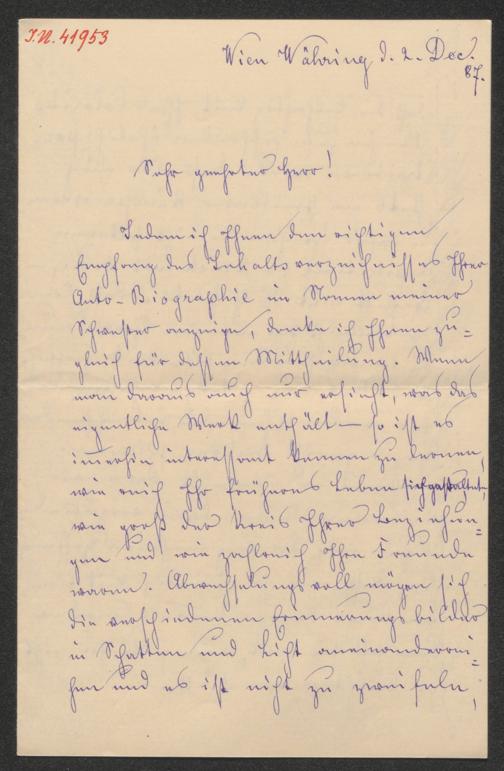 J.N. 41953
Wien Währing d. 2. Dec.
87.
Sehr geehrter Herr!
Indem ich Ihnen den richtigen
Empfang des Inhaltsverzeichnisses Ihrer
Auto-Biographie im Namen meiner
Schwester anzeige, danke ich Ihnen zu=
gleich für dessen Mittheilung. Wenn
man daraus auch nur ersieht, was das
eigentliche Werk enthält – so ist es
im̅erhin interessant kennen zu lernen,
wie reich Ihr früheres Leben sich gestaltet,
wie groß der Kreis Ihrer Beziehun=
gen und wie zahlreich Ihre Freunde
waren. Abwechselungsvoll mögen sich
die verschiedenen Erinnerungsbilder
in Schatten und Licht aneinanderrei=
hen und es ist nicht zu zweifeln,